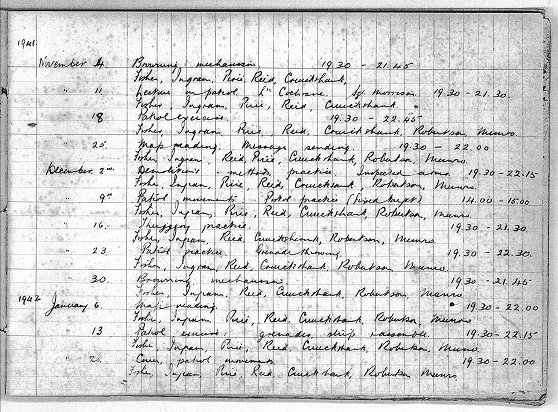 1941
November 4 Browning: mechanism 19.30 - 21.45
Fisher, Ingram, Pirie, Reid, Cruickshank,
" 11 Lecture on patrol Lt Cochrane. Sgt Morrison 19.30 - 21.30.
Fisher, Ingram, Pirie, Reid, Cruickshank
18 Patrol exercise 19.30 - 22.45
Fisher, Ingram, Pirie, Reid, Cruickshank, Robertson, Munro.
25. Map reading. Message sending. 19.30 - 22.00
Fisher, Ingram, Reid, Pirie, Cruickshank, Robertson, Munro.
December. 2nd. Demolitions - methods, practice. Inspected arms. 19.30 - 22.15
Fisher, Ingram, Pirie, Reid, Cruickshank, Robertson, Munro
" 9th Patrol movements - Patrol practice (fixed bayt) 14.00 - 15.00
Fisher, Ingram, Pirie, Reid, Cruickshank, Robertson, Munro.
" 16. practice. 19.30 - 21.30.
Fisher, Ingram, Reid, Cruickshank, Robertson, Munro
" 23 Patrol practice Grenade throwing 19.30 - 22.30.
Fisher, Ingram, Reid, Cruickshank, Robertson Munro
30. Browning mechanism 19.30 - 21.45
Fisher, Ingram, Reid, Cruickshank, Robertson Munro
1942 January 6. Map reading 19.30 - 22.00
Fisher, Ingram, Pirie, Reid, Cruickshank, Robertson, Munro
" 13 Patrol exercise, grenades, strip reassemble. 19.30 - 22.15
Fisher Ingram, Pirie, Reid, Cruickshank, Robertson, Munro
" 20. Cover, patrol movement 19.30 - 22.00
Fisher, Ingram, Pirie, Reid, Cruickshank, Robertson Munro